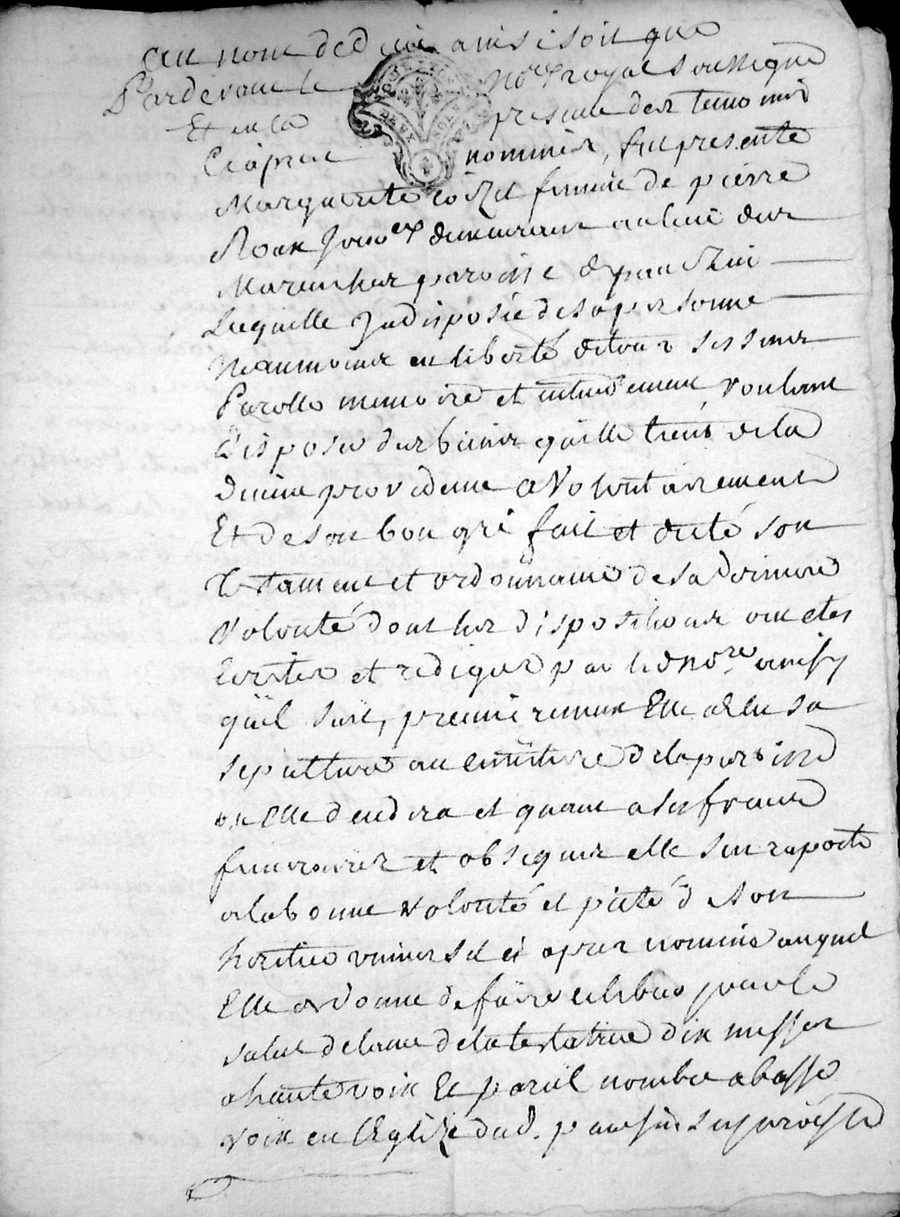 Au nom de dieu ainsi soit que
Pardevant le no.re royal soussigné
Et en la presence des temoins
Ciapres nommés, fut presente
Marguerite femme de pierre
Roux demeurant au lieu des
paroisse de
Laquelle indisposée de sa personne
Neanmoins en liberté de tous ses sens
Parolle memoire et entendement voulant
Disposer des biens quelle tient de la
Divine providence a volontairement
Et de son bon gré fait et dicté son
testament et ordonnance de sa derniere
volonté dont les dispositions ont etes
Ecrites et rediges par led no.re ainsy
quil suit, premierement Elle aelu sa
sepulture au cimetiere de la paroisse
ou Elle et quant a ses fraix
funeraires et obseques elle sen raporte
ala bonne volonté et pieté de son
heritier universel ci apres nommé auquel
Elle ordonne de faire celebrer pour le
salut de lame de la testatrice dix messes
a haute voix et pareil nombre a basse
voix en lEglize dud.